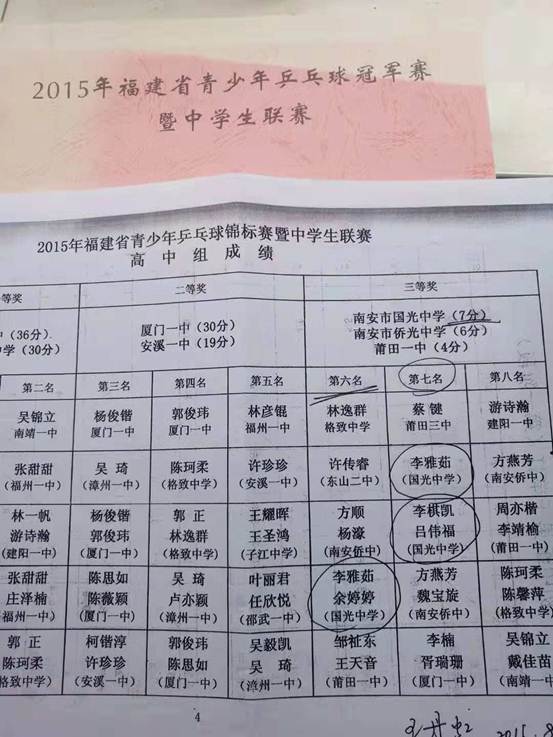 2015年福建省青少年乒乓球冠军赛
暨中学生联赛
2015年福建省青少年乒乓球锦标赛暨中学生联赛
高中组成绩
等奖 二等奖 三等奖
(36分) 厦门一中(30分) 南安市国光中学(7分)
学(30分) 安溪一中(19分) 南安市侨光中学(6分)
莆田一中(4分)
第二名 第三名 第四名 第五名 第六名 第七名 第八名
吴锦立 杨俊锴 郭俊玮 林彦锟 林逸群 蔡键 游诗瀚
南靖一中 厦门一中 厦门一中 福州一中 格致中学 莆田三中 建阳一中
张甜甜 吴琦 陈珂柔 许珍珍 许传睿 李雅茹 方燕芳
(福州一中) (漳州一中) (格致中学) (安溪一中) (东山二中) (国光中学) (南安侨中)
林一帆 杨俊锴 郭正 王耀晖 方顺 李棋凯 周亦楷
游诗瀚 郭俊玮 林逸群 王圣鸿 杨濠 吕伟福 李靖榆
(建阳一中) (厦门一中) (格致中学) (子江中学) (南安侨中) (国光中学) (莆田一中)
张甜甜 陈思如 吴琦 叶丽君 李雅茹 方燕芳 陈珂柔
庄泽楠 陈薇颖 卢亦颖 任欣悦 余婷婷 魏宝旋 陈馨萍
福州一中) (厦门一中) (漳州一中) (邵武一中) (国光中学) (南安侨中) (格致中学)
郭正 柯锴淳 郭俊玮 吴毅凯 邹祉东 李楠 吴锦立
陈珂柔 许珍珍 陈思如 吴琦 王天音 胥瑞珊 戴佳苗
格致中学) (安溪一中) (厦门一中) (漳州一中) (莆田一中) (厦门一中) (南靖一中)
4
2015.8